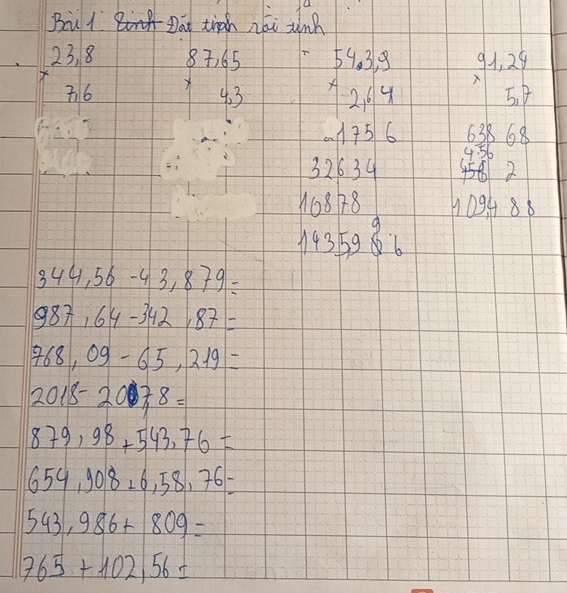 Bài 1: Đặt tính rồi tính
23,8 87,65 54,3,9 91,24
× 7,6 × 4,3 × 2,64 × 5,7
1756 638 68
32634 456 2
10878 109,4 88
1435,9 6
344,56 - 43,879 =
987,64 - 342,87 =
768,09 - 65,219 =
2018 - 20,78 =
879,98 + 543,76 =
654,908 + 6,58,76 =
543,986 + 809 =
765 + 102,56 =